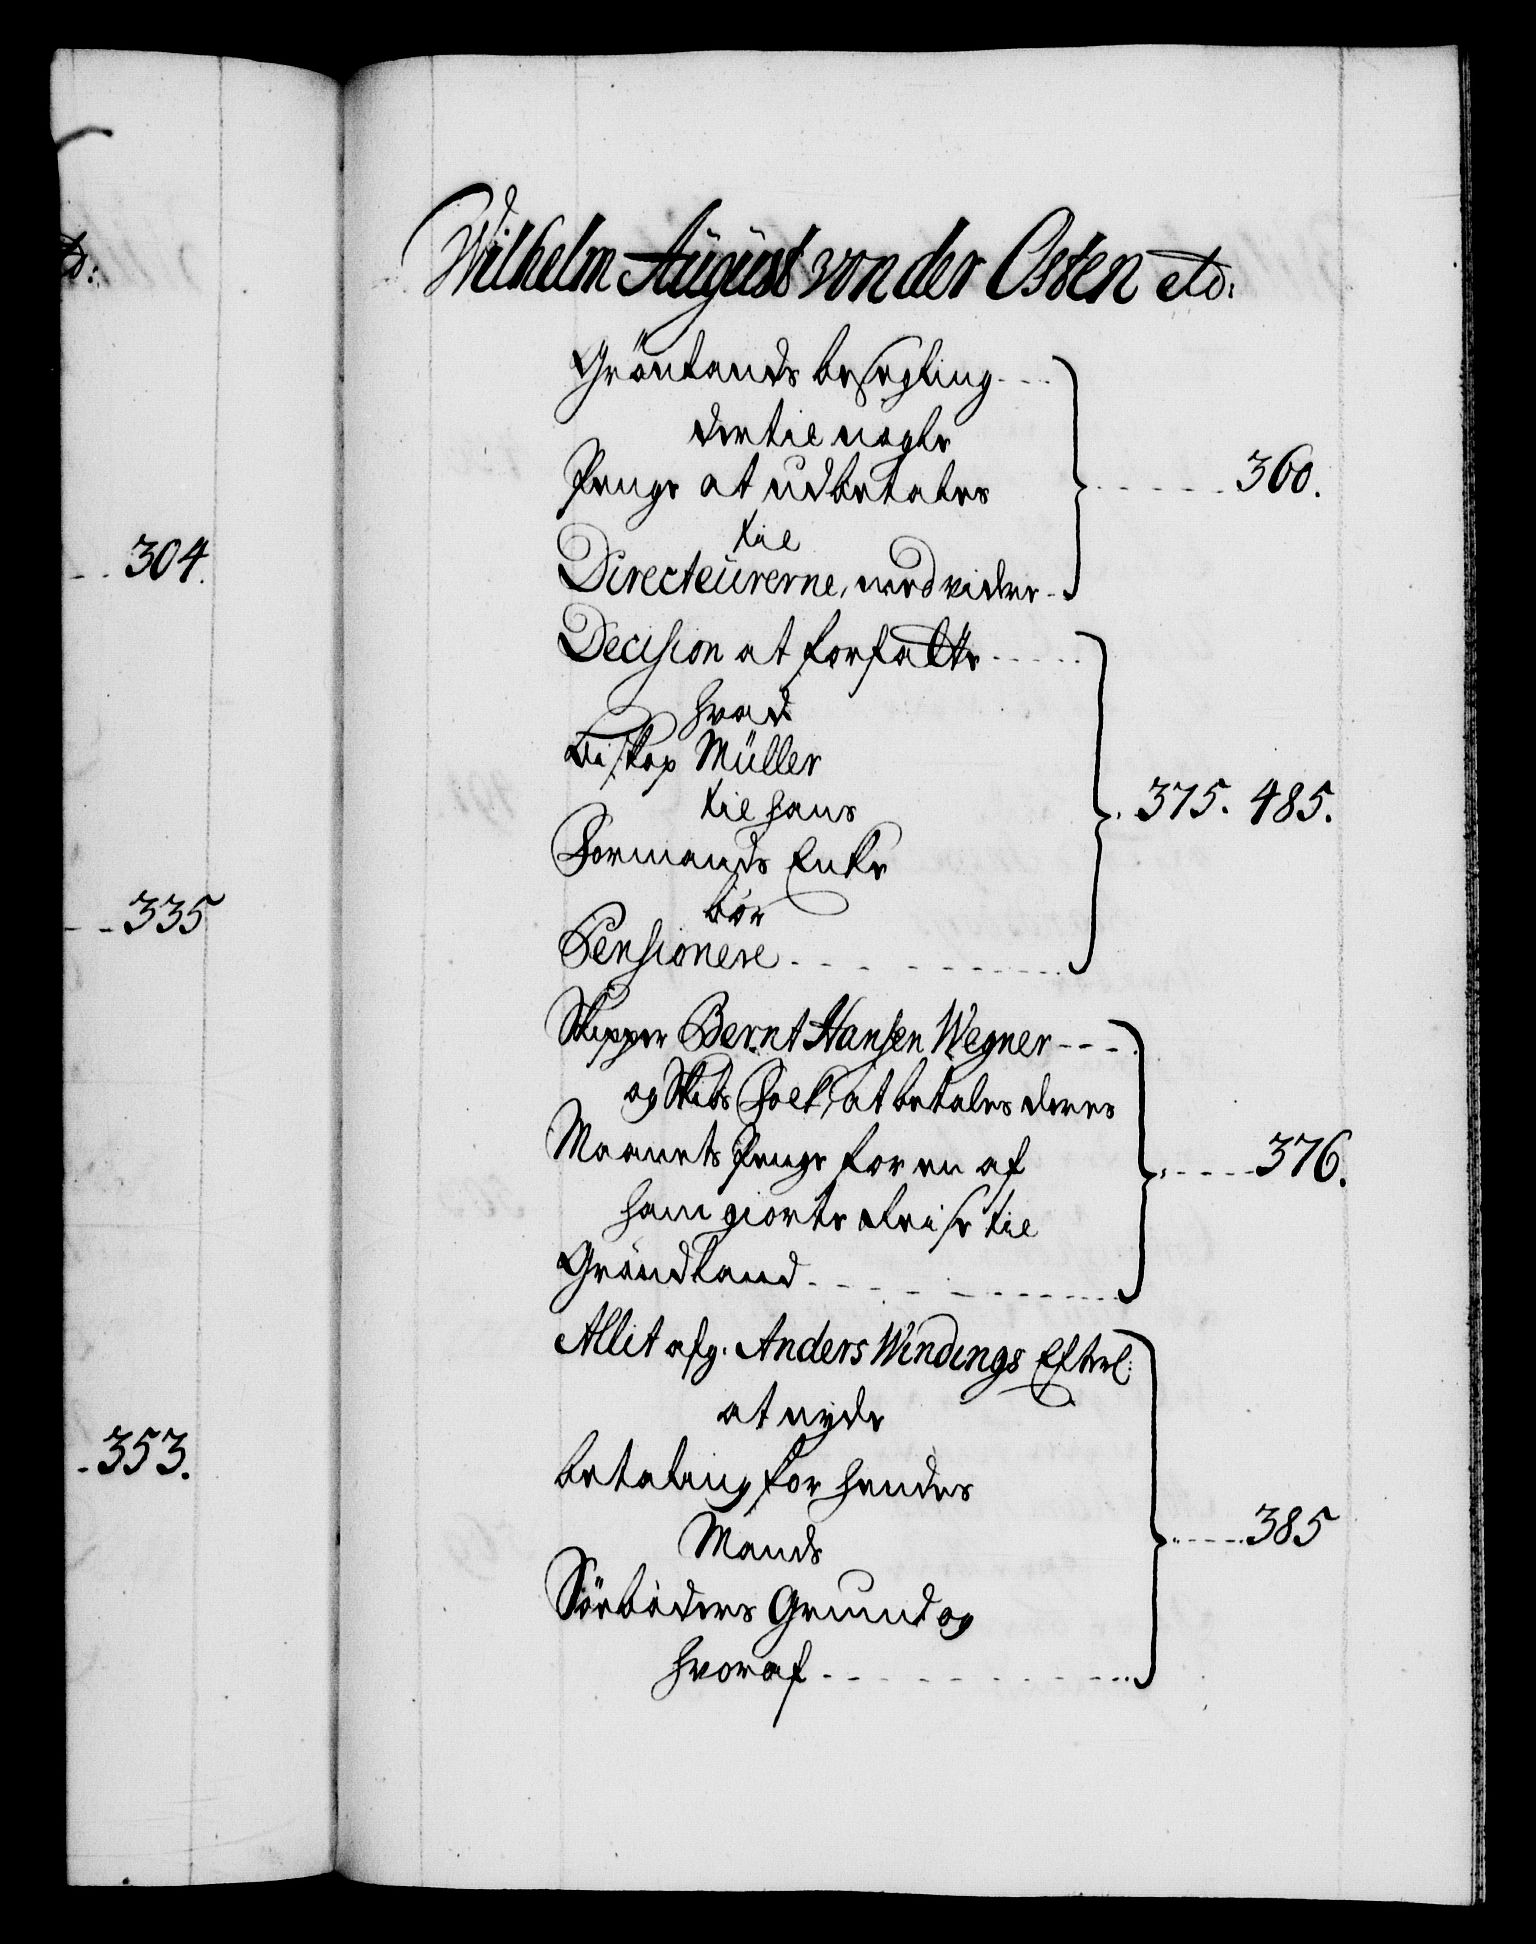 td:
304.
335
353.
Wilhelm August von der Osten etc:
Grönlands besegling
dertil nogle
Penge at udbetales
til
Directeürerne, med videre
360.
Decision at forfatte
hvad
biskop Müller
til hans
Formands Enke
bör
Pensionere
375. 485.
Skipper Bernt Hansen Wegner
og Skibs Folk, at betales deres
Maanets Penge for en af
ham giorte Reise til
Gröndland
376.
Allit afg. Anders Windings Efterl:
at nyde
betaling for hendes
Mands
Söeboders Grund og
hvoraf
385